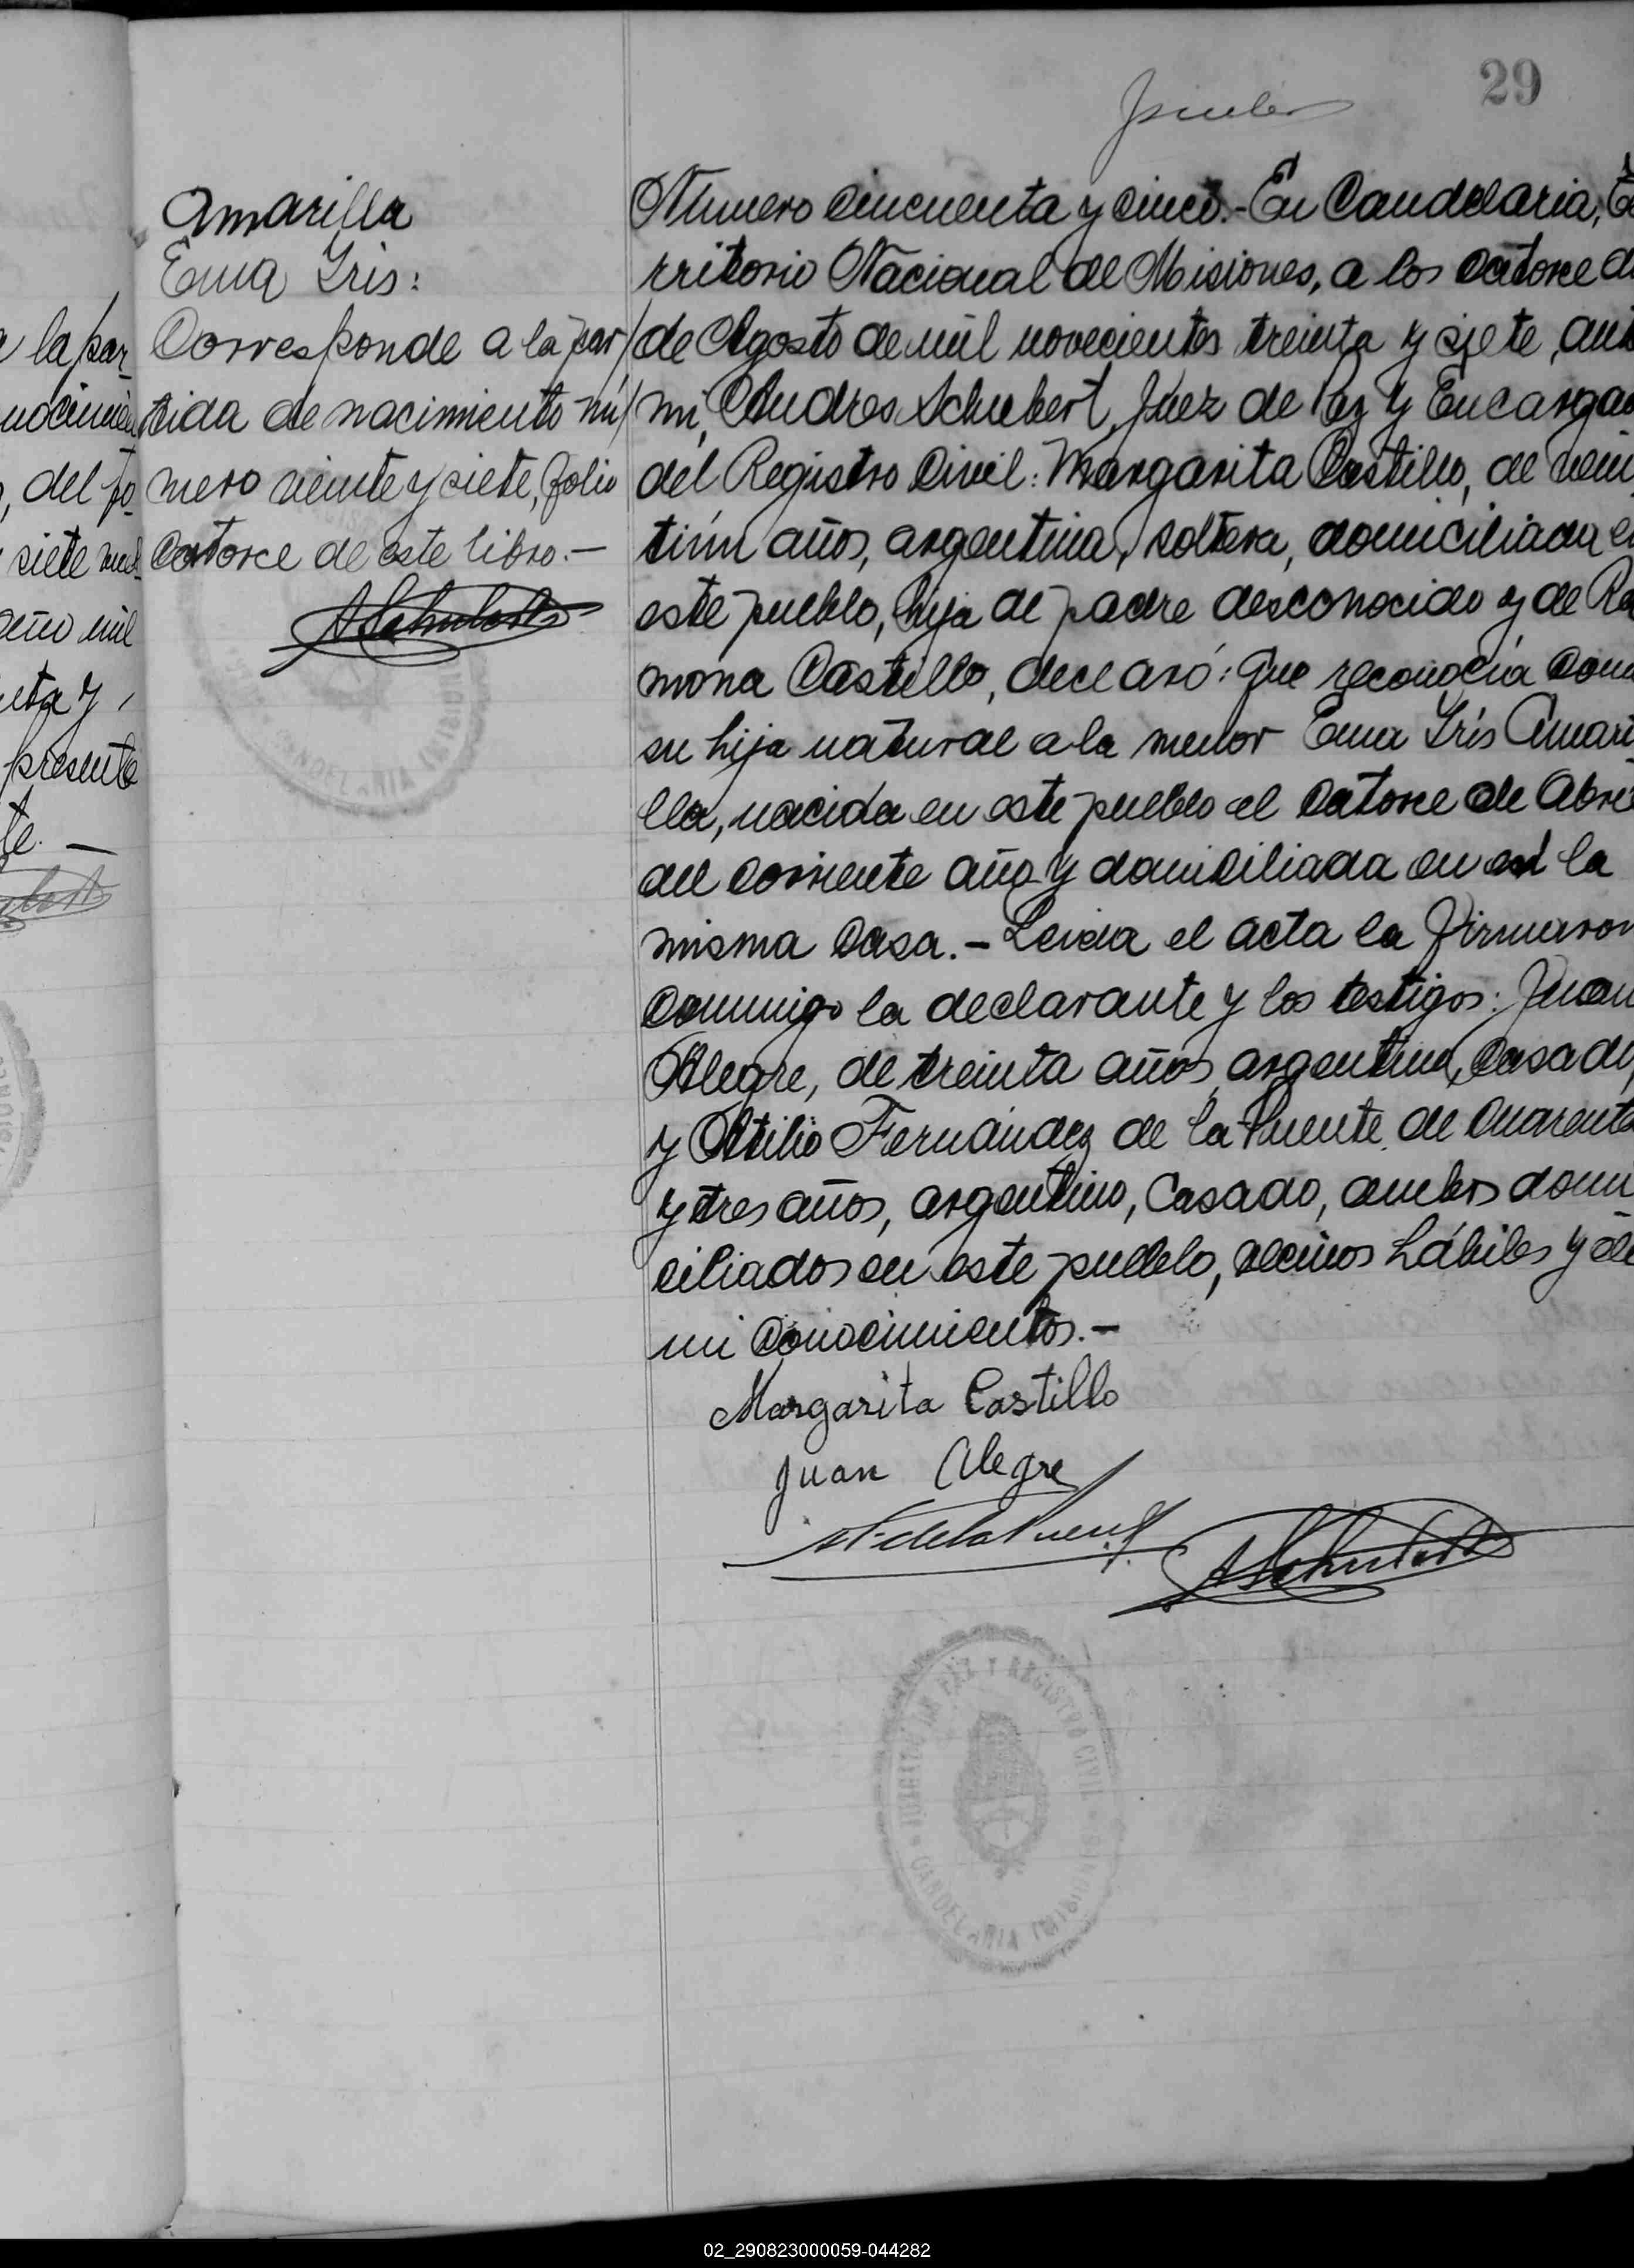 29
Amarilla
Ema Iris:
Corresponde a la par/
tida de nacimiento nú/
mero veinte y siete, folio
catorce de este libro.—
ASchubert
a la par-
nocimien
, del fo-
siete mil
año mil
nta y
presente
te. —
Número cincuenta y cinco.- En Candelaria, Te
rritorio Nacional de Misiones, a los catorce di
de Agosto de mil novecientos treinta y siete, ante
mi, Andres Schubert, Juez de Paz y Encargad
del Registro Civil: Margarita Castillo, de vein
tiún años, argentina, soltera, domiciliada en
este pueblo, hija de padre desconocido y de Ra
mona Castillo, declaró: Que reconocía como
su hija natural a la menor Ema Iris Amari
lla, nacida en este pueblo el catorce de Abril
del corriente año y domiciliada en la
misma casa.- Leida el acta la firmaron
conmigo la declarante y los testigos: Juan
Alegre, de treinta años, argentino, casado,
y Atilio Fernández de la Puente, de cuarenta
y tres años, argentino, casado, ambos domi
ciliados en este pueblo, vecinos hábiles y de
mi conocimientos.-
Margarita Castillo
Juan Alegre
AF de la Puente
ASchubert
JUZGADO DE PAZ Y REGISTRO CIVIL
CANDELARIA (MISIONES)
02_290823000059-044282